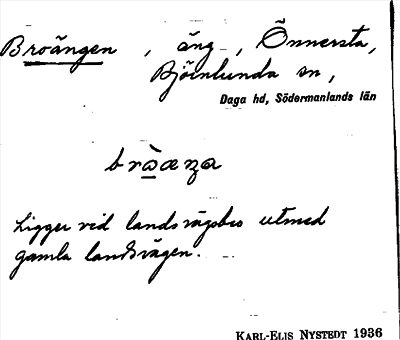 Broängen, äng, Önnersta,
Björnlunda sn,
Daga hd, Södermanlands län
bròæŋa
Ligger vid landsvägsbro utmed
gamla landsvägen.
KARL-ELIS NYSTEDT 1936